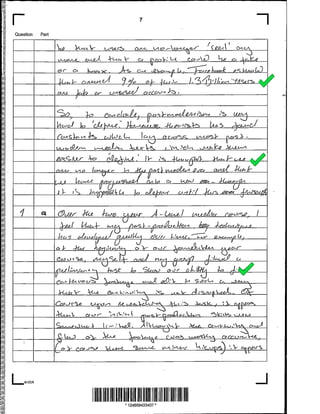 7
Question Part
so that users are no longer 'real' any
more and that a profile could be a fake
or a hoax. As an example, Facebook estimated
that around 9% of their 1.3 billion users
are fake or unused accounts.
So, to conclude, postmodernism is very
hard to 'define'. However theorists has found
constants which lay across most post-
modern media texts, which make them
easier to define. It is thought that we
are no longer in the postmodern era and that
we have progressed into a new era though
it is impossible to define until this over
1 a Over the two year A-level media course, I
feel that my post-production techniques
has developed greatly over time. For example,
at the beginning of our foundation year
course, myself and my group filmed a
preliminary task to show our ability to film
continuous footage and edit in such a way
that the continuity is not disrupted. Of
course upon revisiting this task, it appears
that our initial post-production skills were
somewhat limited. Although the continuity and
flow of the footage was mostly accurate,
(of course there some minor hiccups) it appears